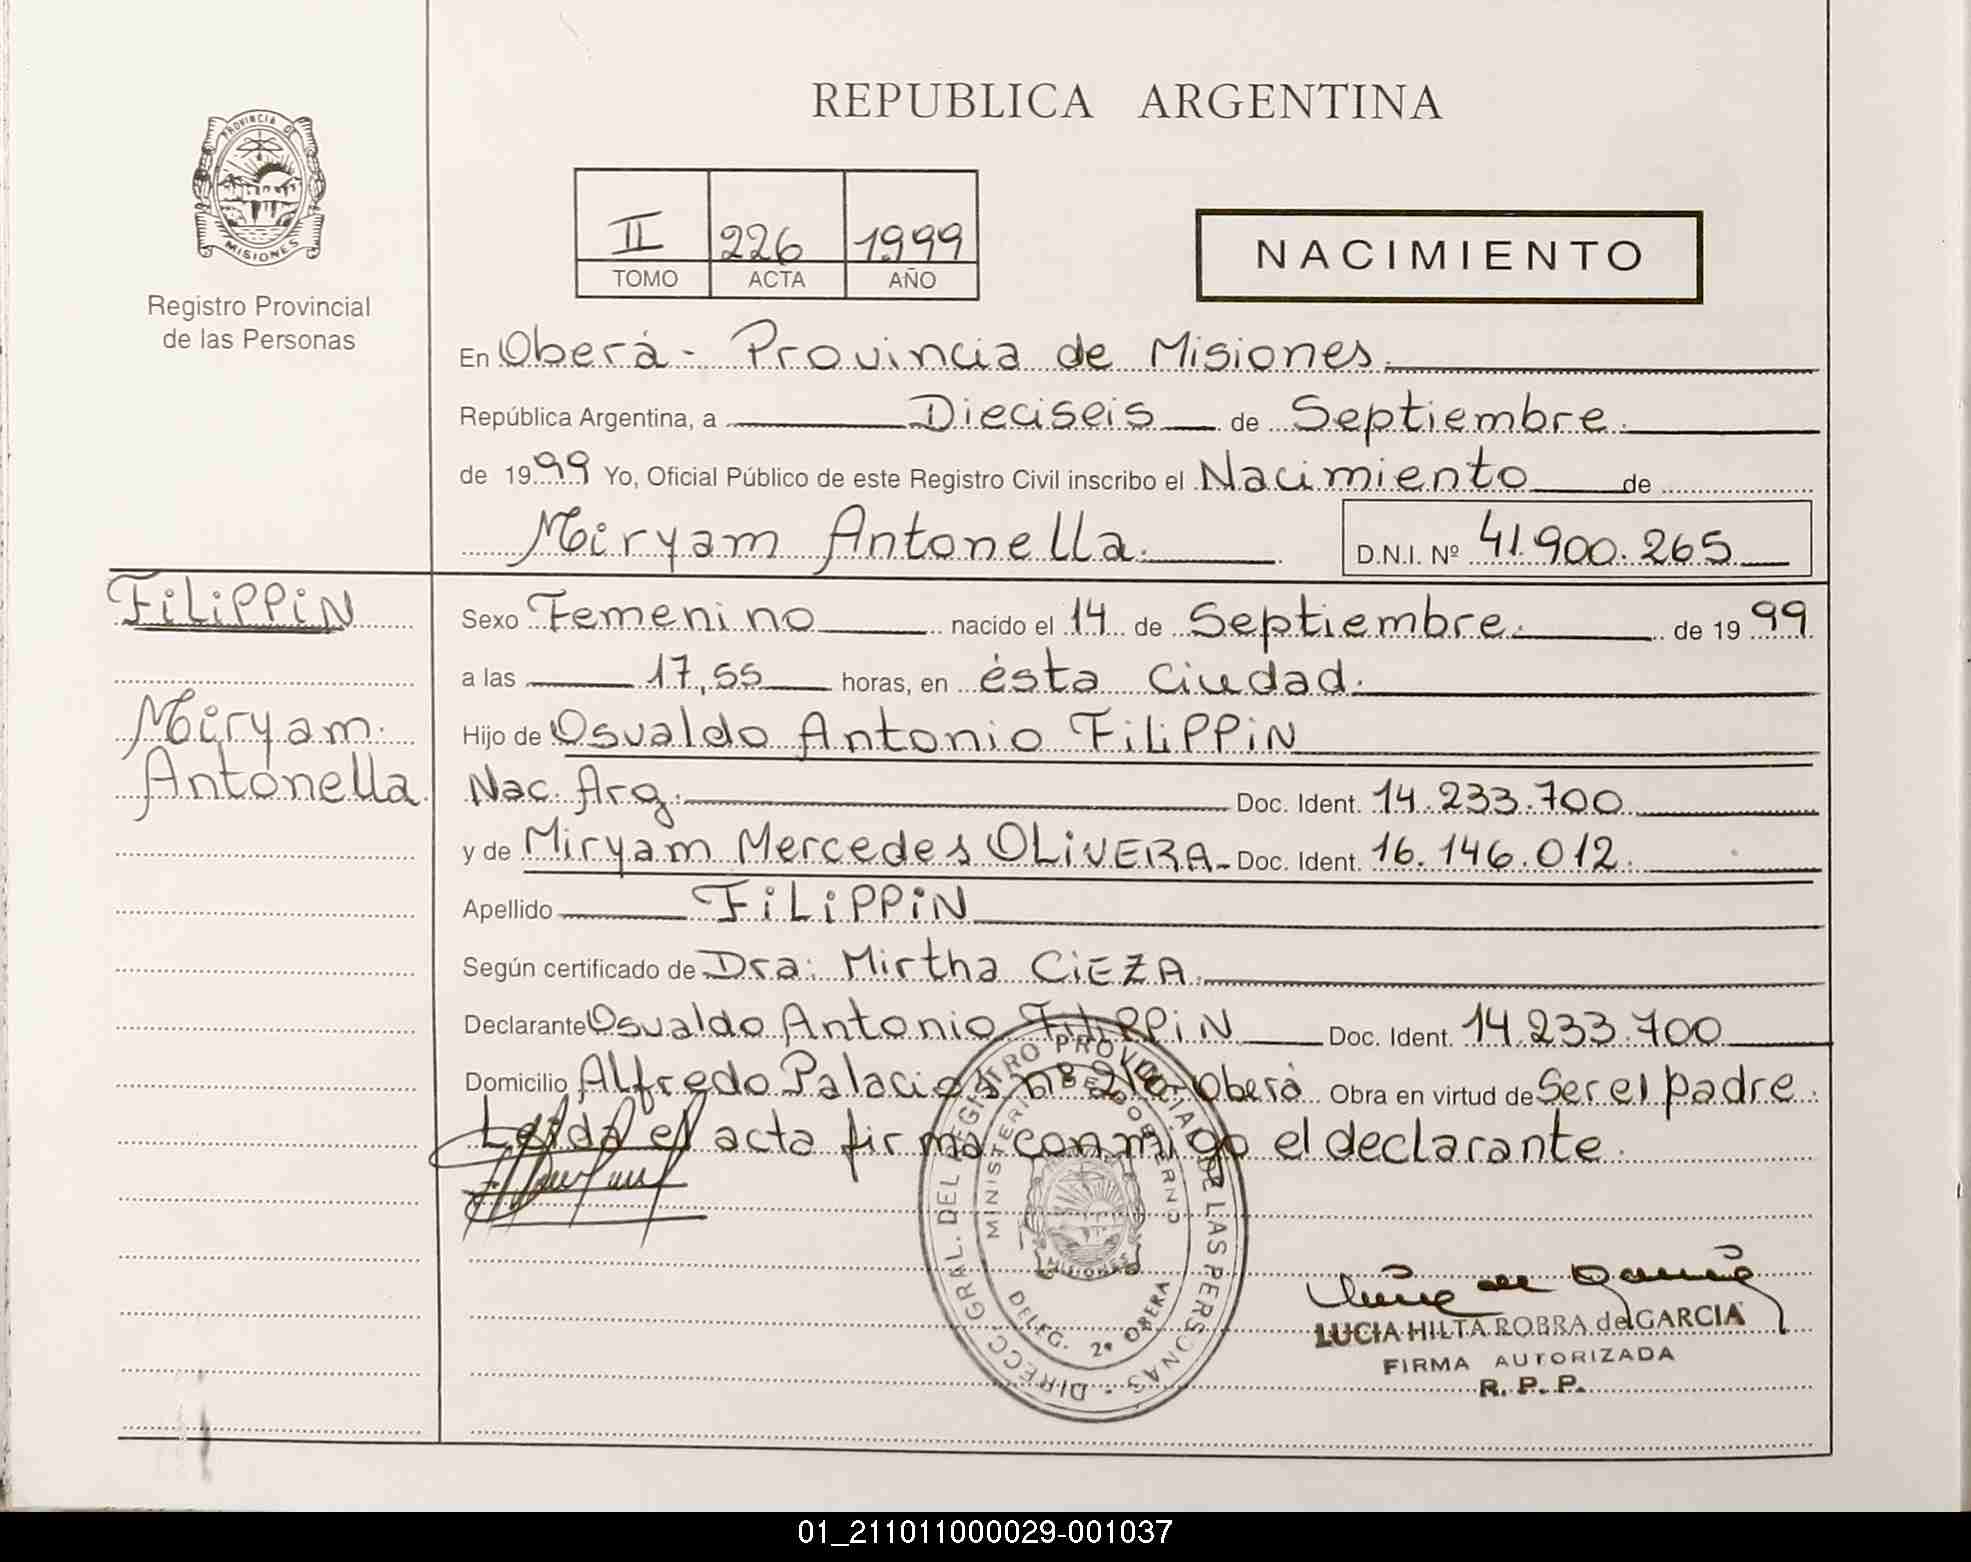 REPUBLICA ARGENTINA
PROVINCIA DE
MISIONES
Registro Provincial
de las Personas
II 226 1999
TOMO ACTA AÑO
NACIMIENTO
En Oberá - Provincia de Misiones.
República Argentina, a Dieciseis de Septiembre.
de 1999 Yo, Oficial Público de este Registro Civil inscribo el Nacimiento de
Miryam Antonella. D.N.I. Nº 41.900.265
FiLiPPiN
Miryam.
Antonella.
Sexo Femenino nacido el 14 de Septiembre. de 1999
a las 17,55 horas, en ésta Ciudad.
Hijo de Osvaldo Antonio FiLiPPiN
Nac. Arg. Doc. Ident. 14.233.700
y de Miryam Mercedes OLiVERA- Doc. Ident. 16.146.012.
Apellido FiLiPPiN
Según certificado de Dra: Mirtha CiEZA.
Declarante Osvaldo Antonio FiLiPPiN Doc. Ident. 14.233.700
Domicilio Alfredo Palacios nº Oberá Obra en virtud de Ser el padre.
Leida el acta firma conmigo el declarante.
DIRECC. GRAL. DEL REGISTRO PROVINCIAL DE LAS PERSONAS
MINISTERIO DE GOBIERNO
MISIONES
DELEG. 2ª OBERA
LUCIA HILTA ROBRA de GARCIA
FIRMA AUTORIZADA
R. P. P.
01_211011000029-001037